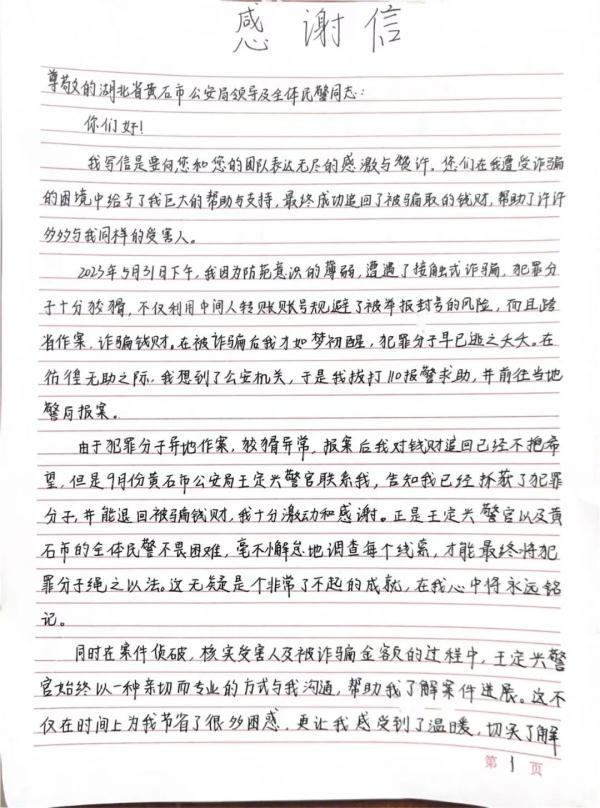 感谢信
尊敬的湖北省黄石市公安局领导及全体民警同志：
你们好！
我写信是要向您和您的团队表达无尽的感激与赞许。您们在我遭受诈骗
的困境中给予了我巨大的帮助与支持，最终成功追回了被骗取的钱财，帮助了许许
多多与我同样的受害人。
2023年5月31日下午，我因为防范意识的薄弱，遭遇了接触式诈骗，犯罪分
子十分狡猾，不仅利用中间人转账账号规避了被举报封号的风险，而且跨
省作案，诈骗钱财。在被诈骗后我才如梦初醒，犯罪分子早已逃之夭夭。在
彷徨无助之际，我想到了公安机关，于是我拨打110报警求助，并前往当地
警局报案。
由于犯罪分子异地作案，狡猾异常，报案后我对钱财追回已经不抱希
望，但是9月份黄石市公安局王定兴警官联系我，告知我已经抓获了犯罪
分子，并能退回被骗钱财，我十分激动和感谢。正是王定兴警官以及黄
石市的全体民警不畏困难，毫不懈怠地调查每个线索，才能最终将犯
罪分子绳之以法。这无疑是个非常了不起的成就，在我心中将永远铭
记。
同时在案件侦破，核实受害人及被诈骗金额的过程中，王定兴警
官始终以一种亲切而专业的方式与我沟通，帮助我了解案件进展。这不
仅在时间上为我节省了很多困惑，更让我感受到了温暖，切实了解
第 1 页